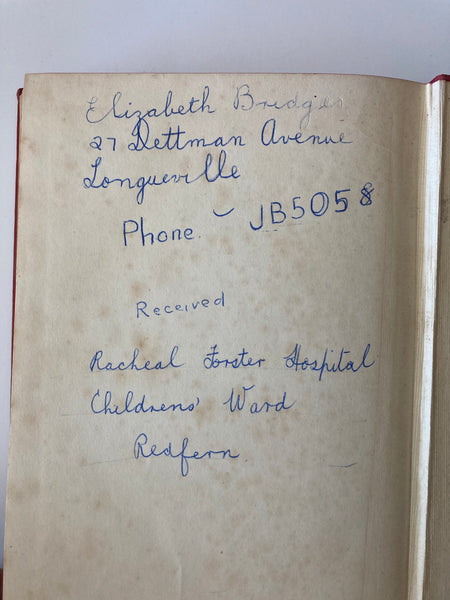 Elizabeth Bridges
27 Dettman Avenue
Longueville
Phone. JB5058
Received
Racheal Forster Hospital
Childrens' Ward
Redfern.